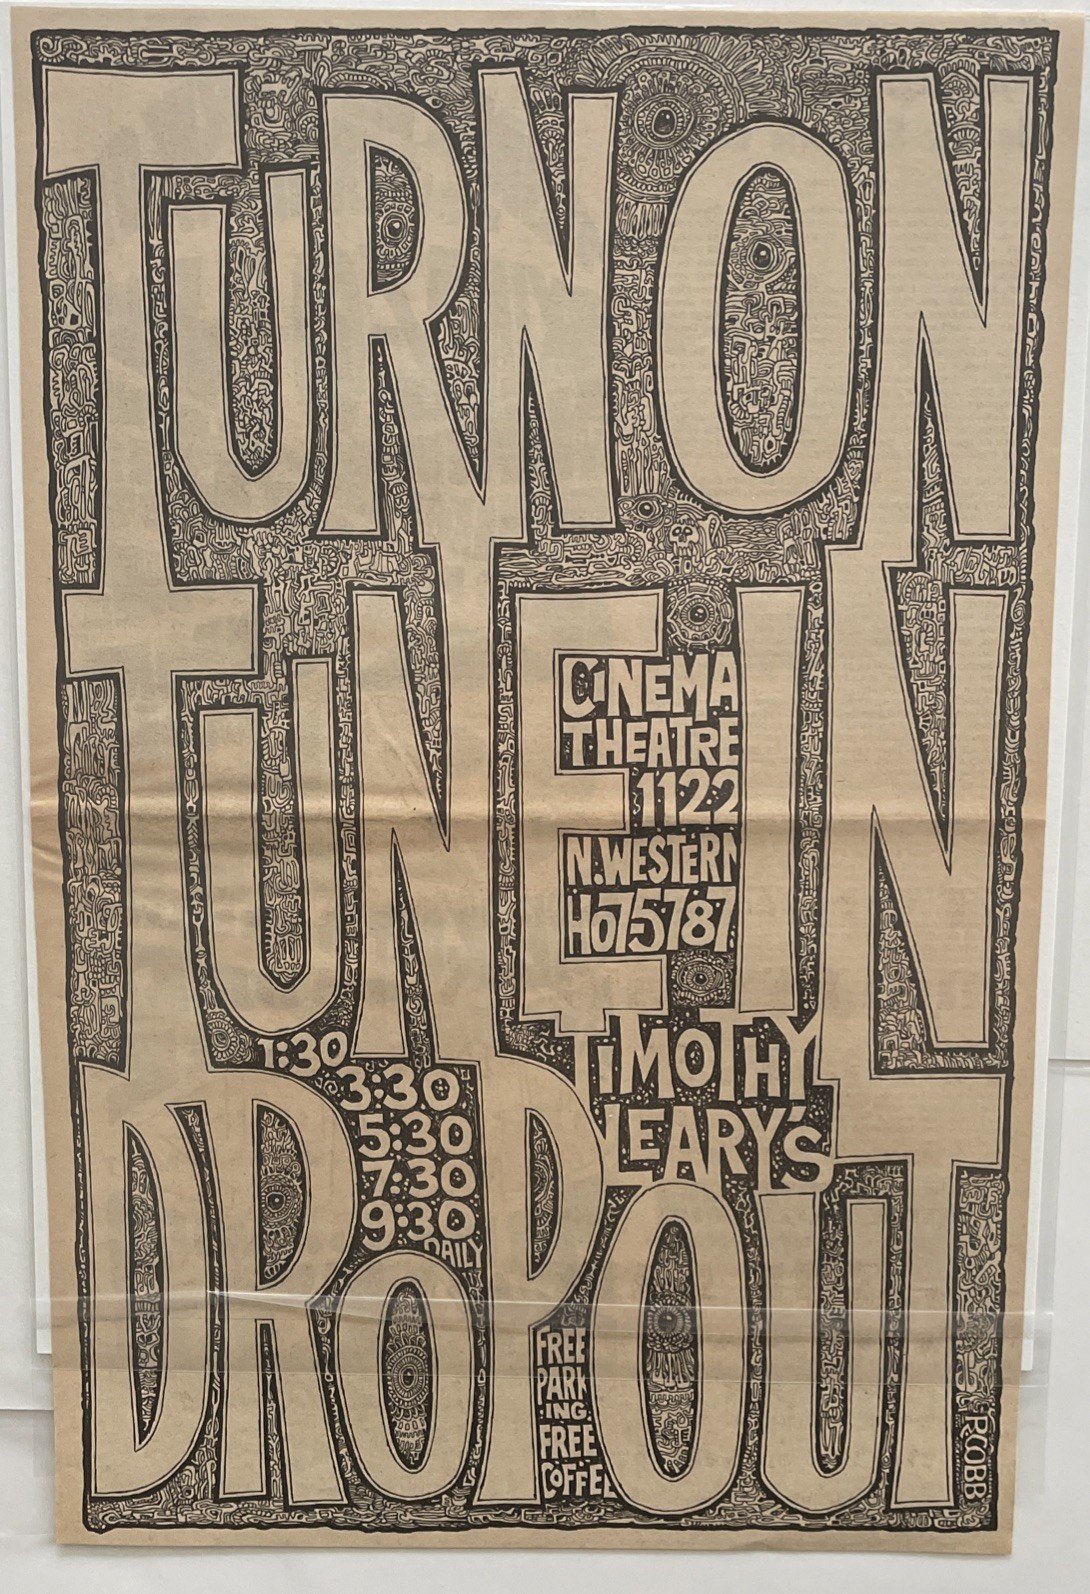 TURN ON
TUNE IN
CINEMA
THEATRE
1122
N. WESTERN
HO75787
TIMOTHY
LEARY'S
1:30
3:30
5:30
7:30
9:30
DAILY
DROP OUT
FREE
PARK
ING.
FREE
COFFEE
ROBB